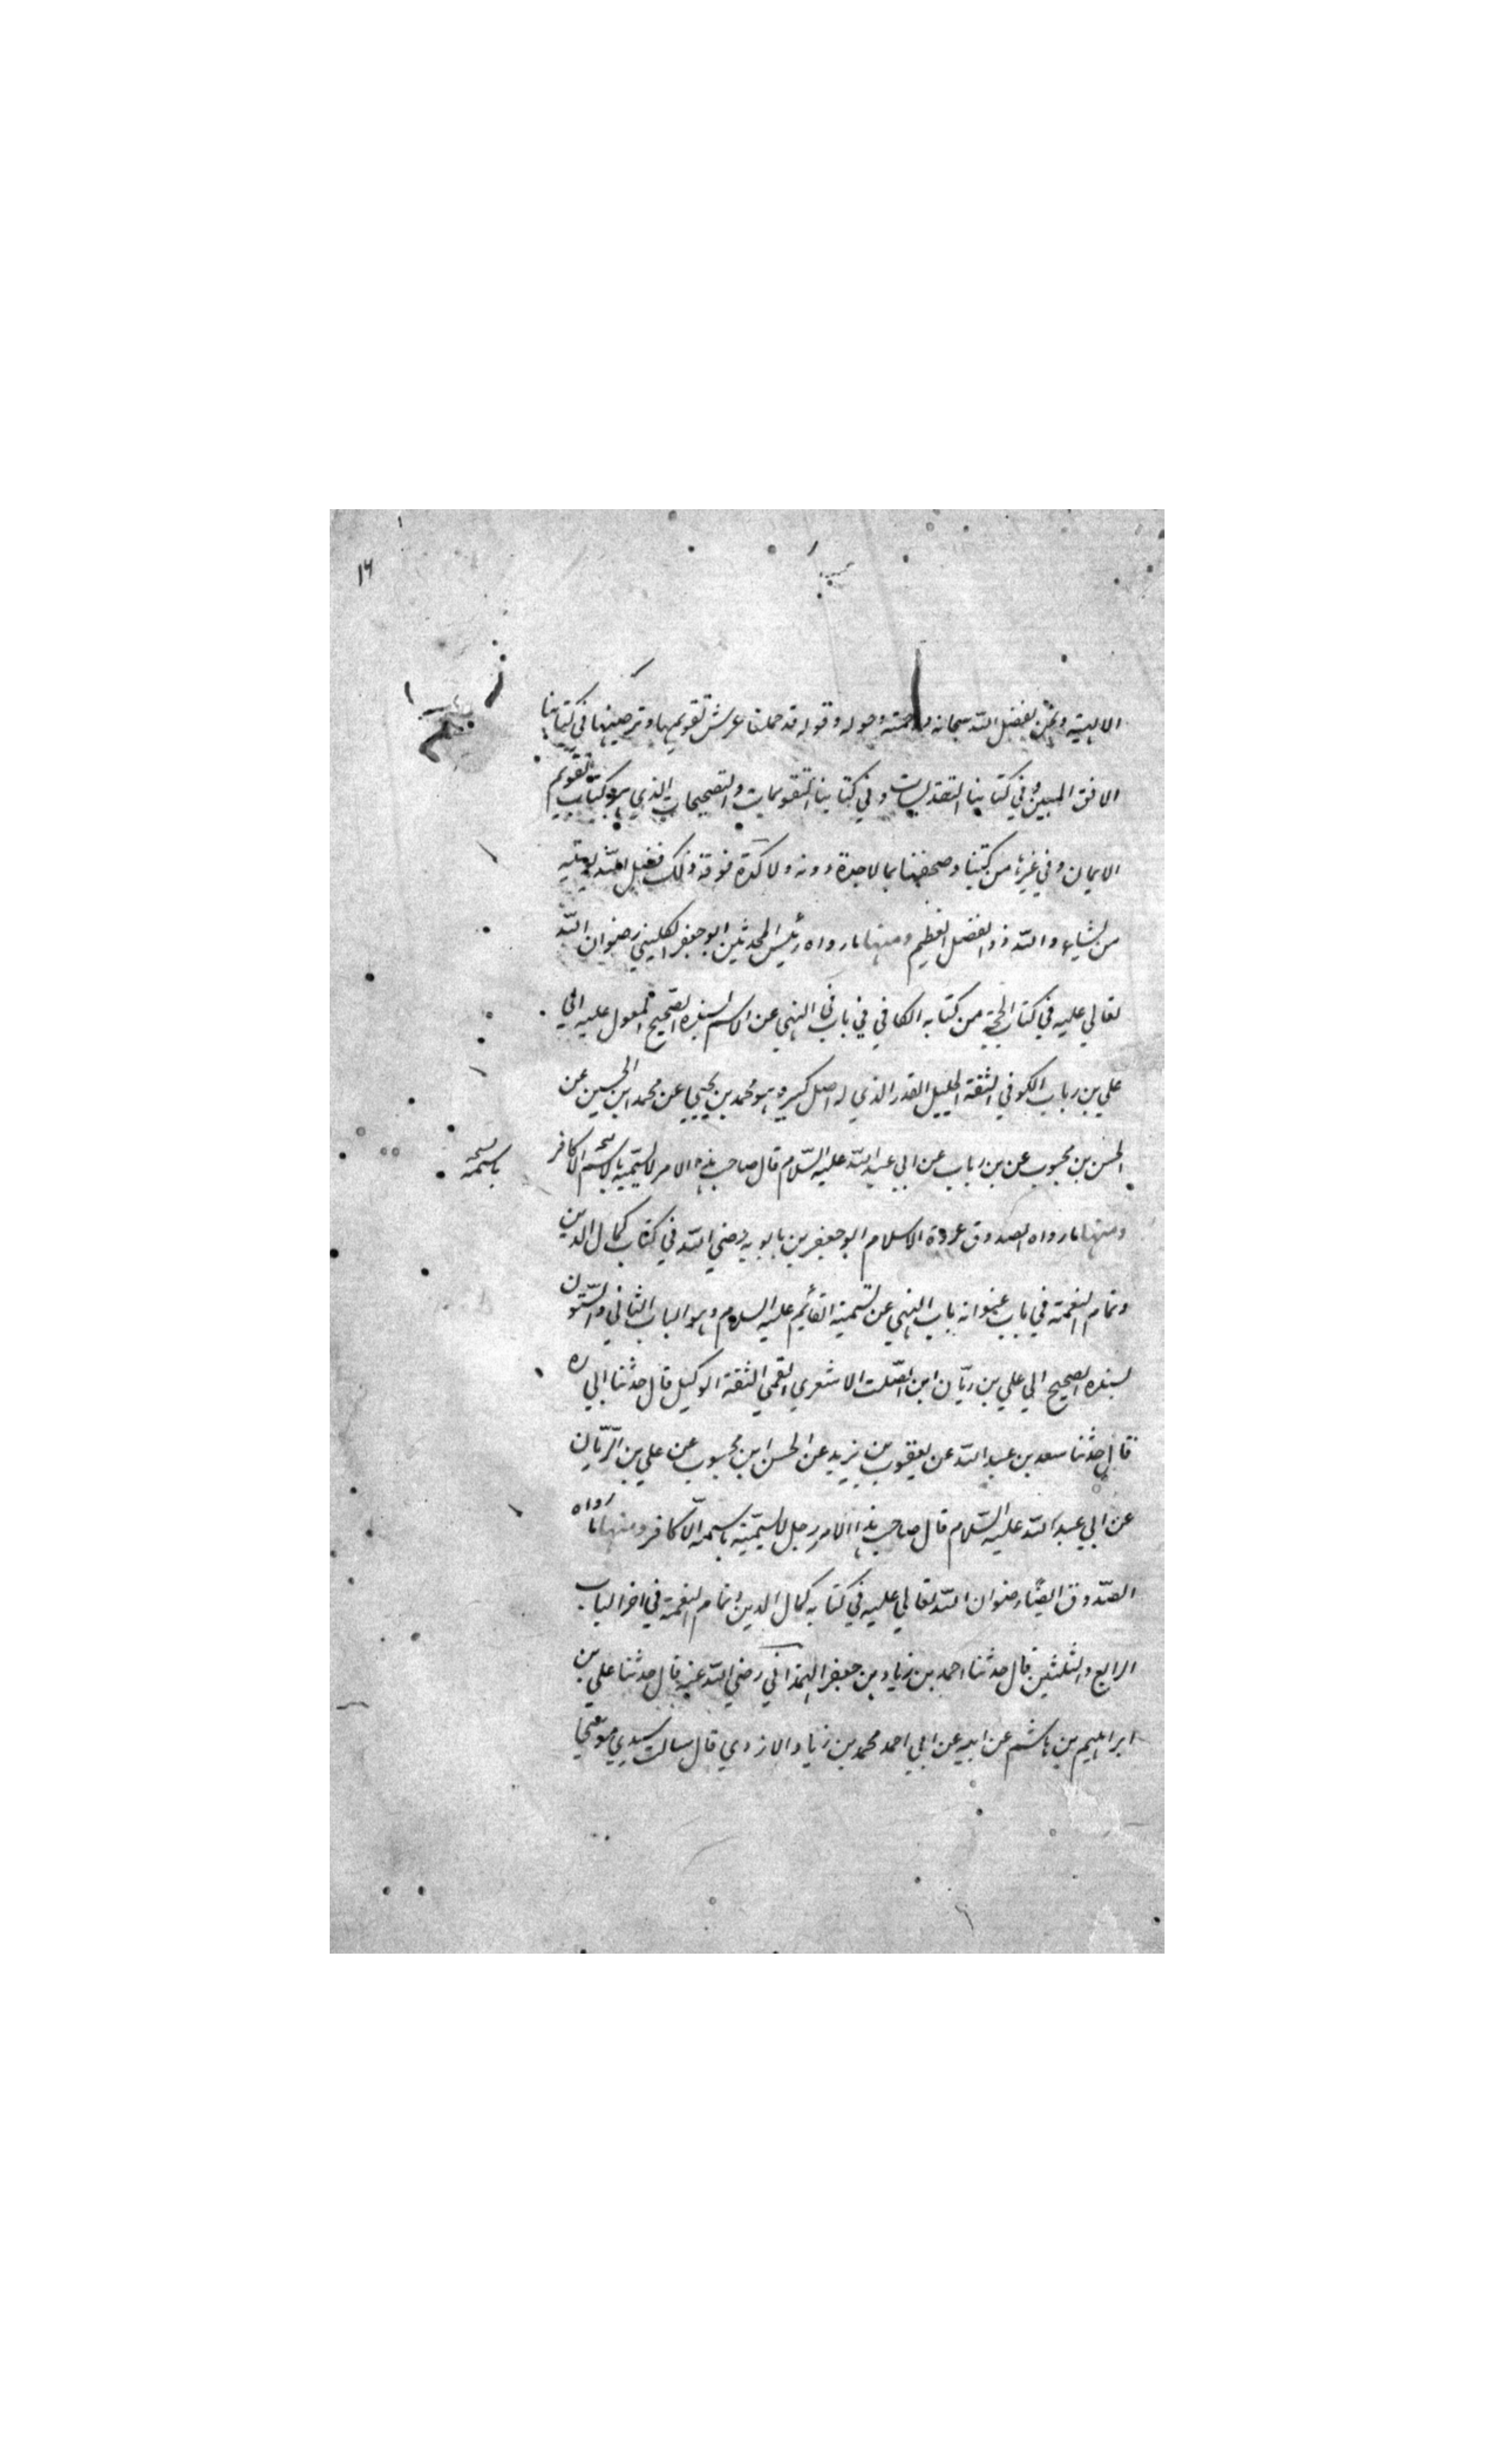 ١٦
الالهية ونحن بفضل الله سبحانه ورحمته وحوله وقوله قد حملنا عرش تقويمها وترصينها في كتابنا
الافق المبين وفي كتابنا التقديسات وفي كتابنا التقويمات والتصحيحات الذي هو كتاب تقويم
الايمان وفي غيرها من كتبنا وصحفنا بما لا جدة دونه ولا كدة فوقه وذلك فضل الله يؤتيه
من يشاء والله ذو الفضل العظيم ومنها ما رواه رئيس المحدثين ابو جعفر الكليني رضوان الله
تعالي عليه في كتاب الحجة من كتابه الكافي في باب في النهي عن الاسم بسنده الصحيح المعول عليه الي
علي بن رباب الكوفي الثقة الجليل القدر الذي له اصل كبير وهو محمد بن يحيي عن محمد ابن الحسين عن
الحسن بن محبوب عن بن رباب عن ابي عبد الله عليه السّلام قال صاحب هذه الامر لا يسمّيه باسم الا كافر
باسمه نسخه
ومنها ما رواه الصدوق عروة الاسلام ابو جعفر بن بابويه رضي الله في كتاب كمال الدين
وتمام النعمة في باب عنوانه باب النهي عن تسمية القائم عليه السلام وهو الباب الثاني والستون
بسنده الصحيح الي علي بن ريّان ابن الصّلت الاشعري القمي الثقة الوكيل قال حدثنا ابي ره
قال حدثنا سعد بن عبد الله عن يعقوب بن يزيد عن الحسن ابن محبوب عن علي بن الرّيّان
عن ابي عبد الله عليه السّلام قال صاحب هذا الامر رجل لا يسمّيه باسمه الّا كافر ومنها ما رواه
الصّدوق ايضًا رضوان الله تعالي عليه في كتابه كمال الدين واتمام النعمة في اخر الباب
الرابع والثلثين قال حدثنا احمد بن زياد بن جعفر الهمذاني رضي الله عنه قال حدثنا علي بن
ابراهيم بن هاشم عن ابيه عن ابي احمد محمد بن زياد الازدي قال سالت سيدي موسي